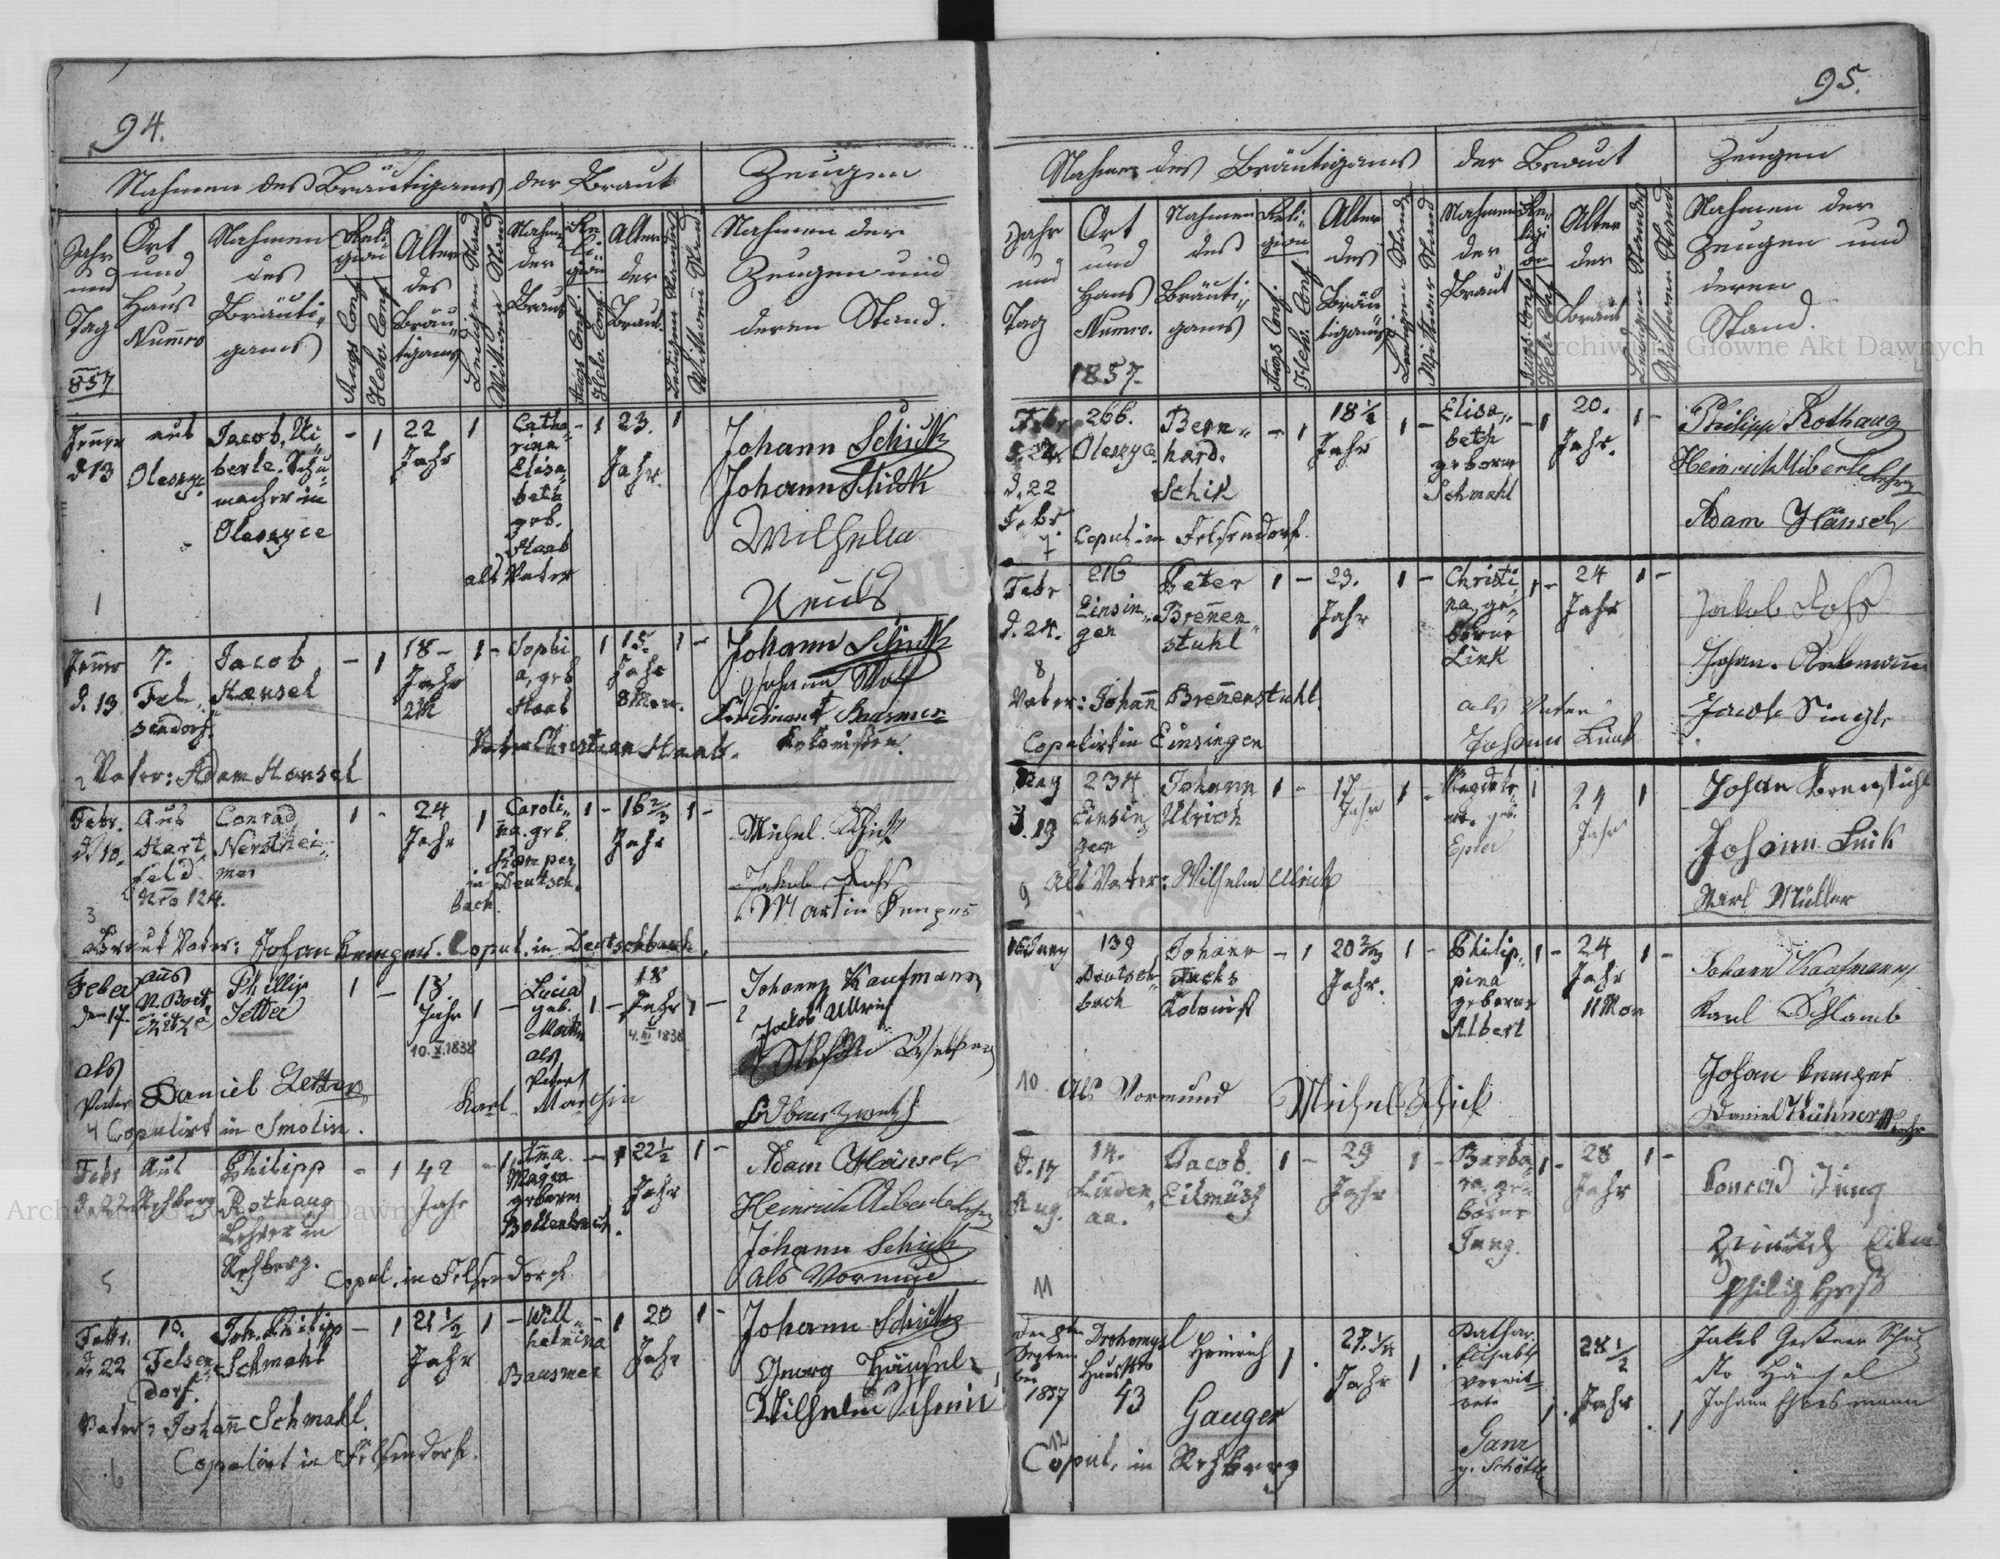 94.
Nahmen des Bräutigams
der Braut
Zeugen
Jahr und Tag
Ort und Haus Numro
Nahmen des Bräuti-gams
Religion
Augs Conf
Helv. Conf
Alter des Bräu-tigams
Ledigen Stand
Wittwer Stand
Nahme der Braut
Religion
Augs Conf.
Helv. Conf.
Alter der Braut
Ledigen Standes
Wittwen Stand
Nahmen der Zeugen und deren Stand.
857
Jenner d 13
aus Oleszyce
Jacob Ui-berle. Schu-macher in Oleszyce
- 1
22 Jahr
1
Catha-rina Elisa-beth geb. Haas
als Vater
- 1
23. Jahr.
1
Johann Schick
Johann Schick
Wilhelm
1
Jenner d. 13
7. Fel-sendorf.
Jacob Hansel
- 1
18- Jahr 2M
1 -
Sophi-a, geb Haas
1
15. Jahr 8 Mon.
1 -
Johann Schick
Johann Wolf
Ferdinant Bausmer
Kolonisten.
Vater Christian Haas.
2 Vater: Adam Hansel
Febr. d 10.
Aus Hart-feld Nro 124.
Conrad Nerothei-mer
1 -
24 Jahr
1
Caroli-na. geb. Kemper in Deutsch-bach
1 -
16 2/3 Jahr
1 -
Michel Schick
Jakob Rohs
Martin Kemper
3
Braut Vater: Johan Kemper. Copul. in Deutschbach.
Feber den 17
aus
Phillip Jetter
1 -
18 Jahr
10.X.1838
1 -
Lucia geb.
als Vater
Karl
1 -
18 Jahr
4.III 1838
1 -
Johann Kaufmann
Jakob Ullrich
als Vater Daniel Zetter
4 Copulirt in Smolin.
Febr d. 22
Aus Rehberg
Philipp Rothaug Lehrer in Rehberg.
- 1
42 Jahr
- 1
Anna Magra geborne Bollenbach.
- 1
22 1/2 Jahr
1 -
Adam Hänsel
Heinrich Uiberle
Johann Schick
als Vormund
5
Copul. in Felsendorf.
Febr. d. 22
10. Felsen-dorf.
Joh. Philip Schmahl
- 1
21 1/2 Jahr
1 -
Will-helmina Bausmer
- 1
20 Jahr
1 -
Johann Schick
Georg Hänsel
Wilhelm
Vater: Johann Schmahl.
6
Copulirt in Felsendorf.
95.
Nahmen des Bräutigams
der Braut
Zeugen
Jahr und Tag
Ort und Haus Numro.
Nahmen des Bräuti-gams
Reli-gion
Augs Conf.
Helv. Conf
Alter des Bräu-tigams
Ledigen Stand
Wittwer Stand
Nahmen der Braut
Re-ligi-on
Augs Conf
Helv Conf
Alter der Braut
Ledigen Standes
Wittwen Stand
Nahmen der Zeugen und deren Stand.
1857.
Febr d. 22.
d. 22 Febr.
266. Oleszyce
Bern-hard. Schik
- 1
18 1/2 Jahr
1 -
Elisa-beth geborne Schmahl
- 1
20. Jahr.
1 -
Philipp Rothaug
Heinrich Uiberle Lehrer
Adam Hänsel
7
Copul. in Felsendorf.
Febr d. 24.
216 Einsin-gen
Peter Brenen-stuhl
1 -
23. Jahr
1 -
Christi-na, ge-borne Link
1 -
24 Jahr
1 -
Jakob Rohs
Jacob Singler
8
Vater: Johann Brenenstuhl.
als Vater Johann Link
Copulirt in Einsingen
May d. 13
234. Einsin-gen
Johann Ulrich
1 -
17 Jahr
1 -
geb: Epler
1
21 Jahr
1
Johan Brenstuhl
Johann Link
Karl Müller
9
Als Vater: Wilhelm Ulrich
139 Deutsch-bach
Johann Fuchs Kolonist
- 1
20 Jahr.
1 -
Philip-pina geborne Albert
1 -
24 Jahr 11 Mon
1 -
Johann Kaufmann
Karl Schlamb
Johan Kemper
Daniel Kühner
10
Als Vormund Michel Schick
d. 17 Aug.
14. Linden-au.
Jacob. Eilmüß
1 -
29 Jahr
1 -
Barba-ra ge-borne Jung.
1 -
28 Jahr
1 -
Conrad Jung
Philip Heß
11
Den 8ten Septem-ber 1857
Drohomysl Haus Nro 43
Heinrich Gauger
1 .
27 1/2 Jahr
1 .
Kathar. Elisabeth verwit-wete Ganz g. Schöttl
1 .
28 1/2 Jahr
. 1
Jakob
Hänsel
Johann Ehresmann
12
Copul. in Rehberg
Archiwum Główne Akt Dawnych
Archiwum Główne Akt Dawnych